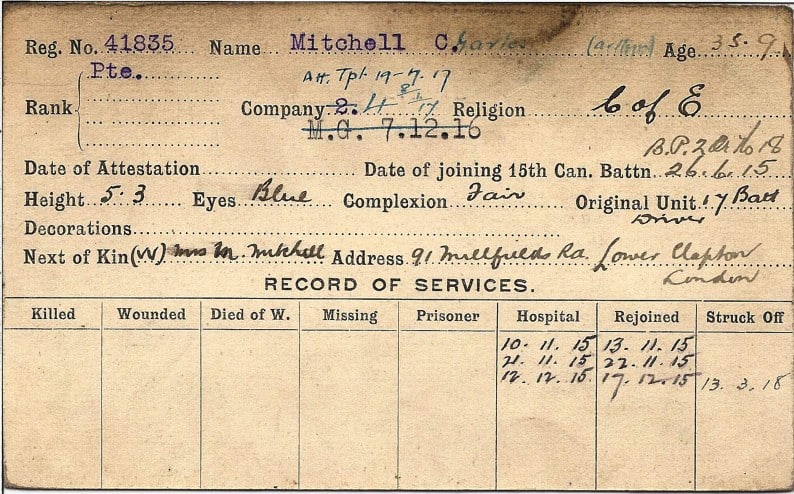 Reg. No. 41835 Name Mitchell Charles (Arthur) Age 35.9
Pte.
Att. Tpt. 19-7-17
Rank Company 2. 4 17 Religion C of E
M.G. 7.12.16
B.P. 2 18
Date of Attestation Date of joining 15th Can. Battn. 26.6.15
Height 5.3 Eyes Blue Complexion Fair Original Unit 17 Batt
Driver
Decorations
Next of Kin (W) Mrs M. Mitchell Address 91 Millfields Rd. Lower Clapton
London
RECORD OF SERVICES.
Killed Wounded Died of W. Missing Prisoner Hospital Rejoined Struck Off
10. 11. 15 13. 11. 15
21. 11. 15 22. 11. 15
12. 12. 15 17. 12. 15 13. 3. 18